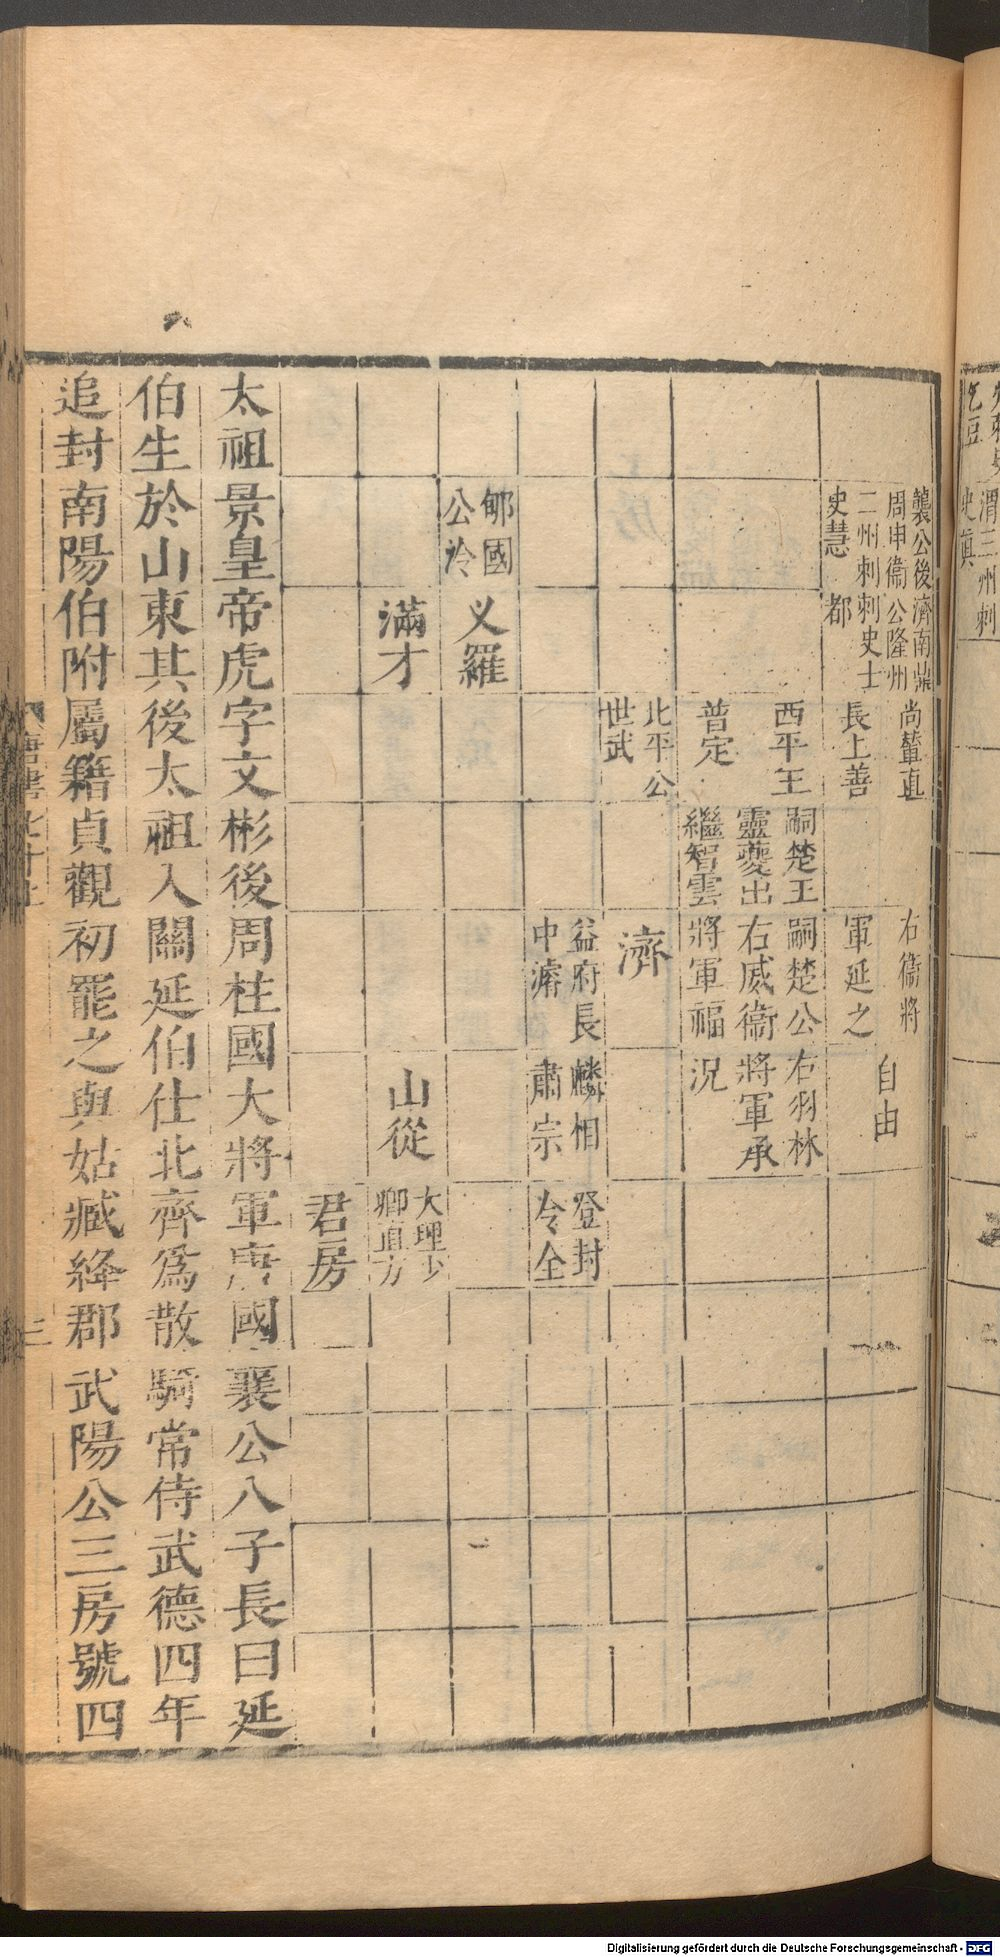 襲公後濟南鼎
周申衞公隆州
二州刺刺史士
史慧　都
尚輦直
長上善
右衞將
軍延之
自由
西平王
普定
嗣楚王
靈夔出
繼智雲
嗣楚公
右威衞
將軍福
右羽林
將軍承
況
北平公
世武
濟
益府長
中濬
麟相
肅宗
登封
令全
郇國
公泠
义羅
滿才
山從
大理少
卿直方
君房
太祖景皇帝虎字文彬後周柱國大將軍唐國襄公八子長曰延
伯生於山東其後太祖入關延伯仕北齊爲散騎常侍武德四年
追封南陽伯附屬籍貞觀初罷之與姑臧絳郡武陽公三房號四
唐書七十上
三
渭三州刺
史眞
乞豆
Digitalisierung gefördert durch die Deutsche Forschungsgemeinschaft - DFG